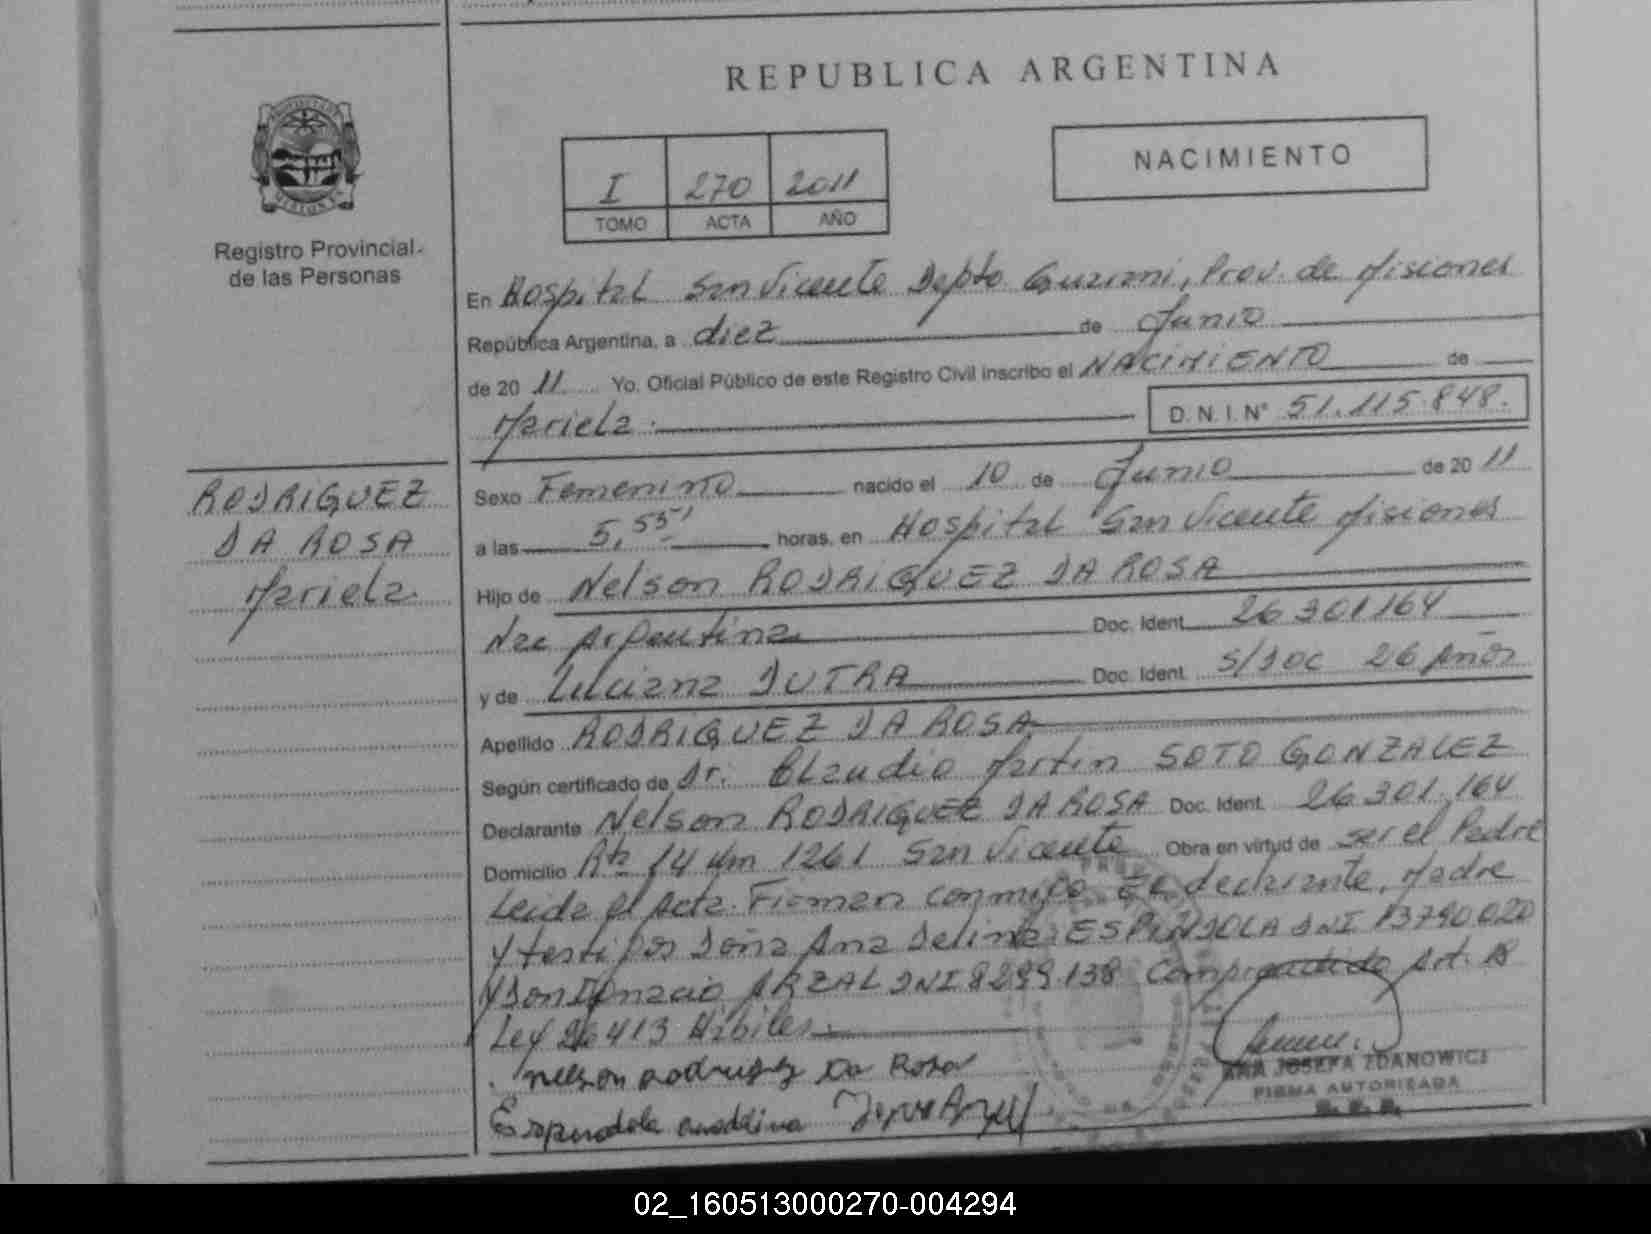 REPUBLICA ARGENTINA
NACIMIENTO
I 270 2011
TOMO ACTA AÑO
Registro Provincial
de las Personas
En Hospital San Vicente Depto Guarani, Prov. de Misiones
República Argentina, a diez de Junio
de 20 11 Yo, Oficial Público de este Registro Civil inscribo el NACIMIENTO de
Mariela D.N.I.N° 51.115.848.
RODRIGUEZ
DA ROSA
Mariela
Sexo Femenino nacido el 10 de Junio de 20 11
a las 5,55' horas, en Hospital San Vicente Misiones
Hijo de Nelson RODRIGUEZ DA ROSA
Nac Argentina Doc. Ident. 26 301 164
y de Luciana DUTRA Doc. Ident. S/DOC 26 Años
Apellido RODRIGUEZ DA ROSA
Según certificado de Dr. Claudio Martin SOTO GONZALEZ
Declarante Nelson RODRIGUEZ DA ROSA Doc. Ident. 26 301 164
Domicilio Rta 14 Km 1261 San Vicente Obra en virtud de ser el Padre
Leida el Acta. Firman conmigo El declarante, Madre
y testigos Doña Ana Delina ESPINDOLA DNI 13790020
y Don Ignacio ARZAL DNI 8299.138 Comprendido Art. 18
Ley 26413 Hábiles
nelson rodriguez Da Rosa
ANA JOSEFA ZDANOWICZ
FIRMA AUTORIZADA
R. P. P.
02_160513000270-004294